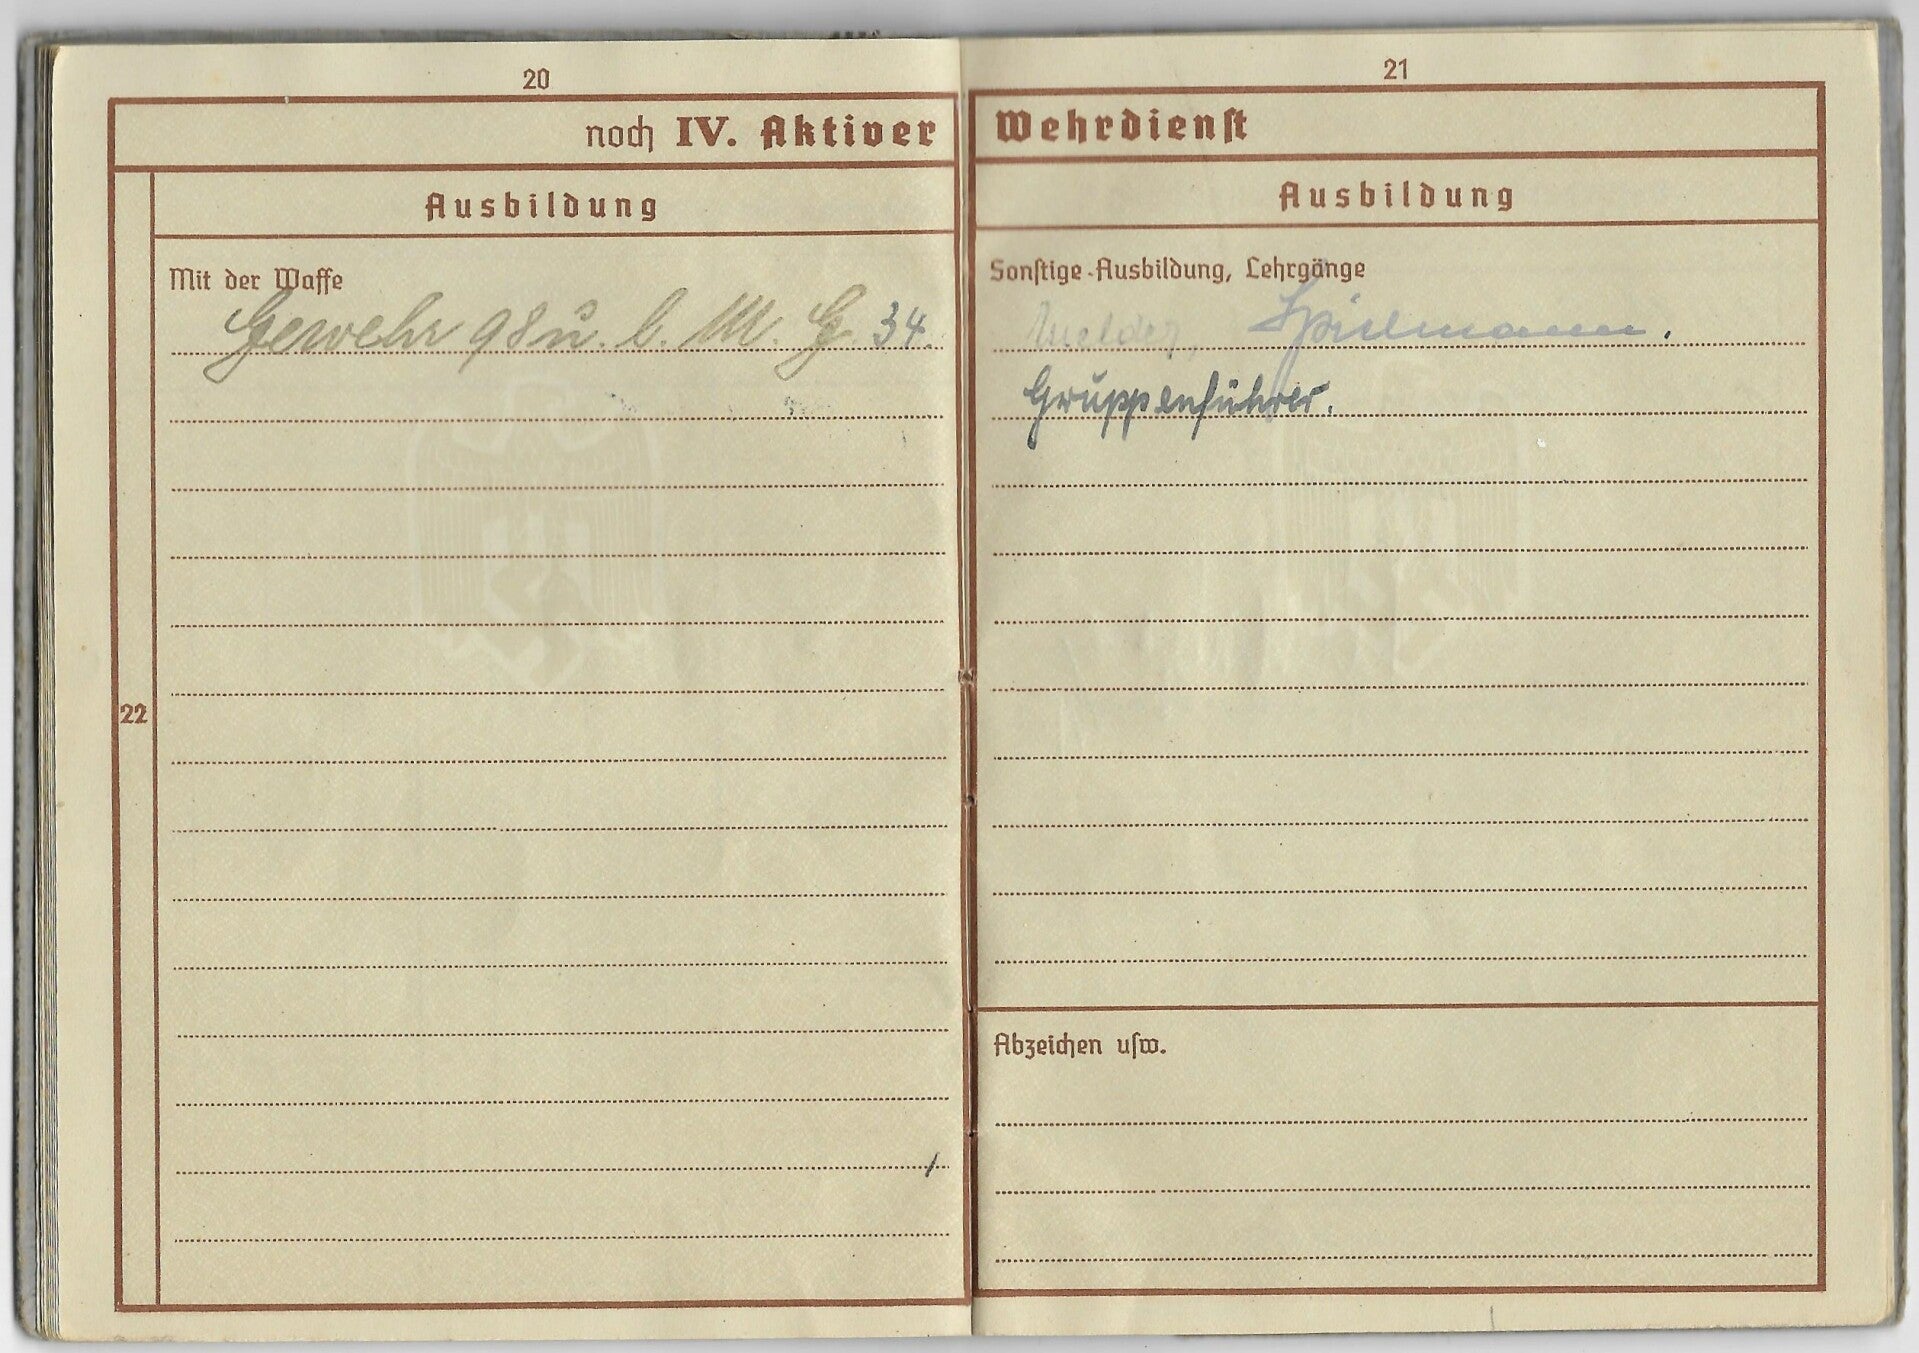 20
noch IV. Aktiver
Ausbildung
Mit der Waffe
Gewehr 98 u. l. M. G. 34.
22
21
Wehrdienst
Ausbildung
Sonstige Ausbildung, Lehrgänge
Melder, Spielmann.
Gruppenführer.
Abzeichen usw.